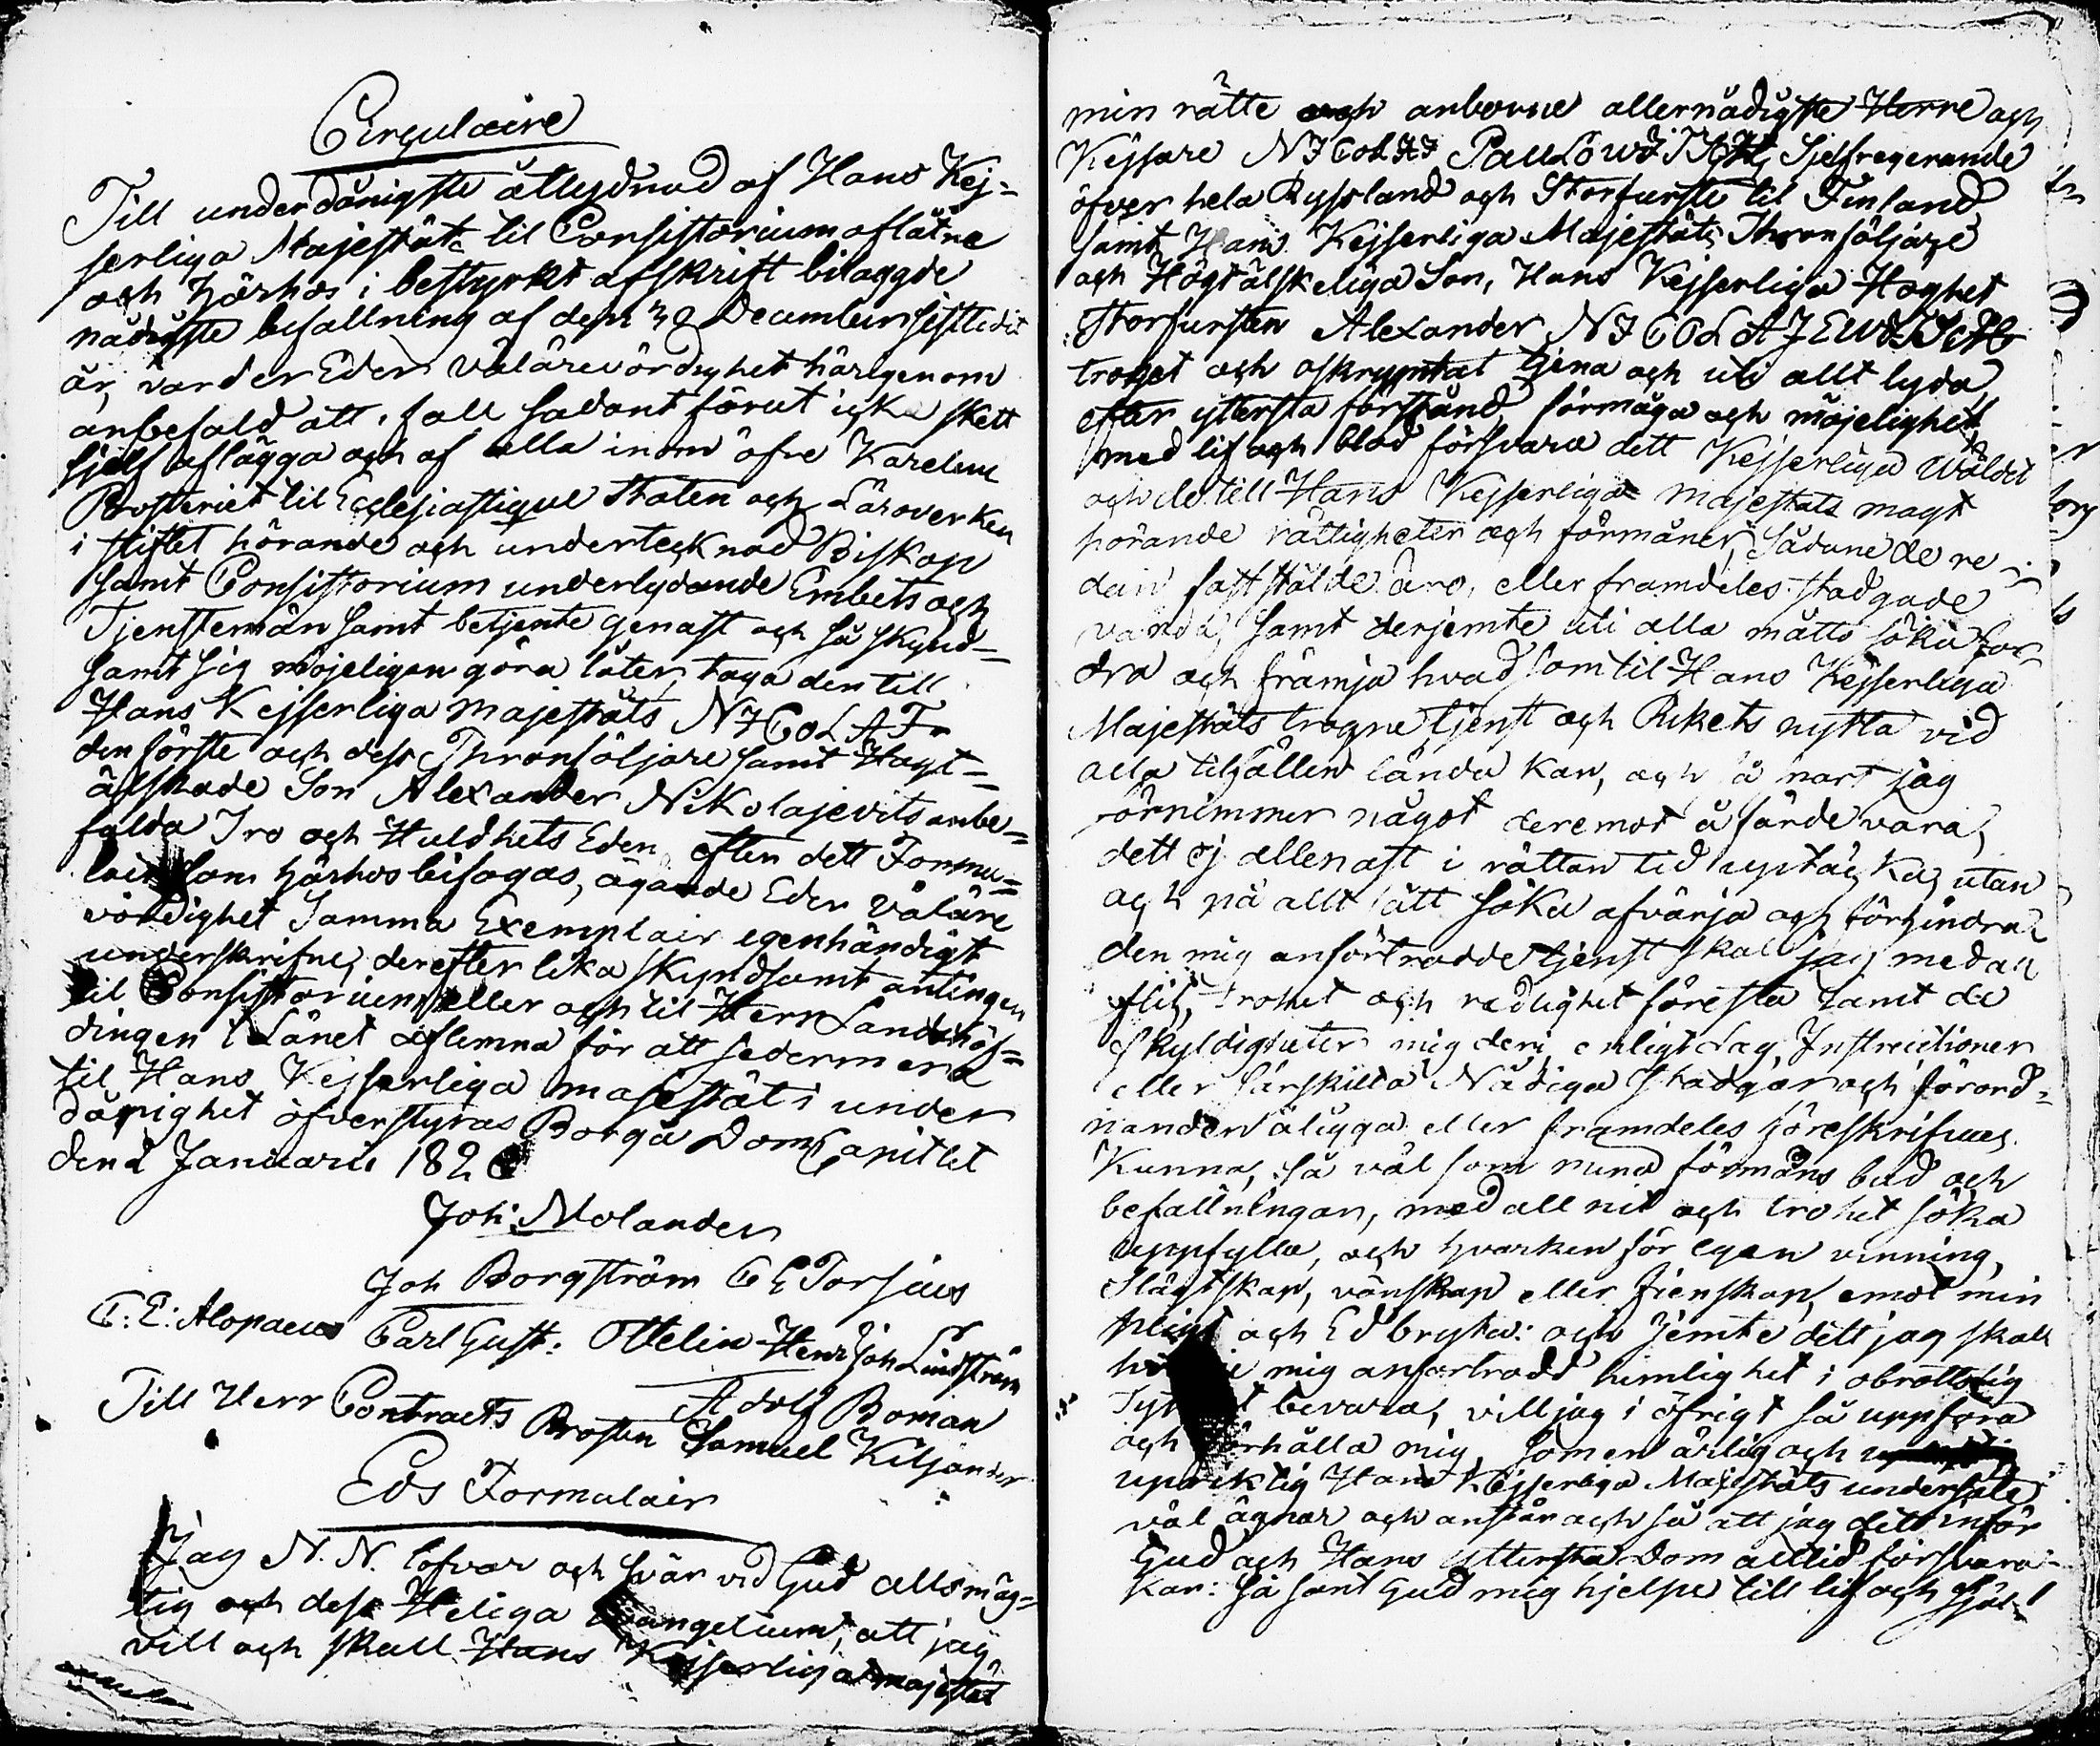 Circulaire
Till underdånigste åtlydnad af Hans Kej=
serliga Majestäts til Consistorium aflåtne
och härhos i bestyrkt afskrift bilaggde
nådigste befallning af den Decembr sistledit
år, varder Eder Välärevördighet härigenom
anbefald att, i fall sådant förut icke skett
sjelf aflägga och af alla inom öfre Karelens
Prosteriet til Ecclesiastique staten och Läroverken
i stiftet hörande och undertecknad Biskop
samt Consistorium underlydande Embets och
Tjenstemän samt betjente genast och så skynd=
samt sig möjeligen göra låter, taga den till
Hans Kejserliga Majestäts NICOLAI
den förste och dess Thronföljare samt Högt=
älskade Son Alexander Nikolajevits anbe=
falda Tro och Huldhets Eden, efter dett Formu=
lair som härhos bifogas, ägande Eder Väläre
vördighet samma Exemplair egenhändigt
underskrifne, derefter lika skyndsamt antingen
til Consistorium eller och til Herr Landshöf=
dingen i Länet aflemna för att sedermera
til Hans Kejserliga Majestät i under
dånighet öfverstyras Borgå DomCapitlet
den 2 Januarii 182
Joh: Molander
Joh Borgström C E Forsius
C: E: Alopaeus Carl Gust: Ottelin Henr Joh Lindström
Adolf Boman
Till Herr Contracts Prosten Samuel Kiljander
Eds Formulair
Jag N. N. lofvar och svär vid Gud allsmäg=
tig och dess Heliga Evangelium, att jag
vill och skall Hans Kejserliga Majestät
min rätte och anborne allernådigste Herre och
Kejsare NICOLAI PauLowITSCH, Sjelfregerande
öfver hela Ryssland och Storfurste til Finland
samt Hans Kejserliga Majestäts Thronföljare
och Högtälskeliga Son, Hans Kejserliga Höghet
Storfursten Alexander NICOLAJEWITSCH
troget och oskrymtat tjena och uti allt lyda,
efter yttersta förstånd, förmåga och möjelighet
med lif och blod försvara dett Kejserliga Wäldet
och de till Hans Kejserliga Majestäts magt
hörande rättigheter och förmåner, sådane de re
dan faststälde äro, eller framdeles stadgade
varda, samt derjemte uti alla måtto söka for
dra och främja hvad som til Hans Kejserliga
Majestäts trogne tjenst och Rikets nytta vid
alla tilfällen lända kan, och så snart jag
förnimmer något deremot å färde vara,
dett ej allenast i rättan tid uptäcka, utan
och på allt sätt söka afvärja och förhindra
den mig anförtrodde tjenst skall jag med all
flit, trohet och redlighet förestå samt de
skyldigheter mig deri, enligt Lag, Instructioner
eller särskilta Nådiga Stadgar och förord=
nanden åligga eller framdeles föreskrifvas
Kunna, så väl som mina förmäns bud och
befallningar, med all nit och trohet söka
uppfylla, och hvarken för egen vinning,
Slägtskap, vänskap eller fienskap, emot min
pligt och Ed bryta: och jemte dett jag skall
mig anförtrodd hemlighet i obrottslig
bevara, vill jag i öfrigt så uppföra
och förhålla mig, som en ärlig och
upriktig Hans Kejserliga Majestäts undersåte
väl ägnar och anstår och så att jag dett inför
Gud och Hans Yttersta Dom alltid försvara
kan: så sant Gud mig hjelpe till lif och själ!